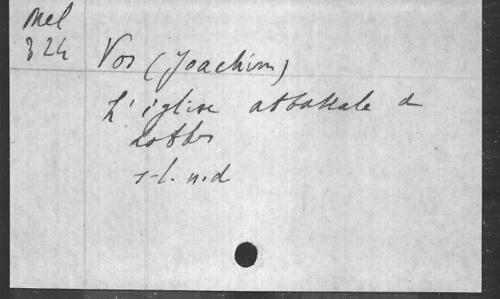 Mel
324
Vos (Joachim)
L'église abbatiale d
Lobbes
s.l. n.d